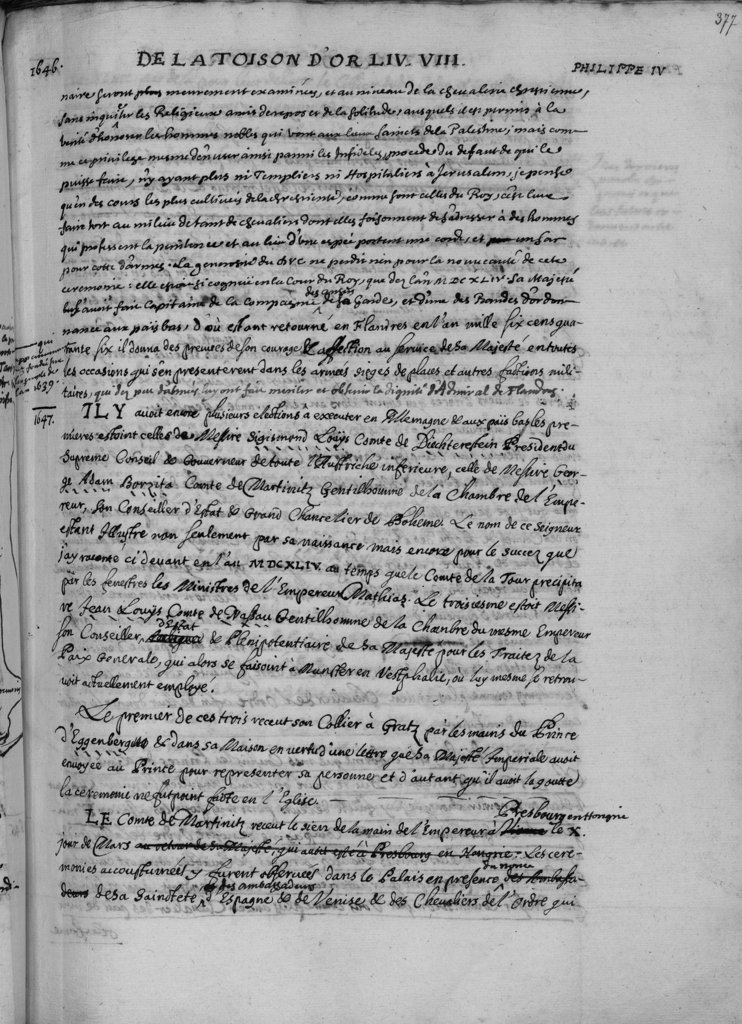 377
1646. DE LA TOISON D'OR LIV. VIII. PHILIPPE IV
naire seront plus meurement examinées, et au niveau de la chevalerie chrestienne,
sans inquieter les Religieux amis de repos et de la solitude, ausquels il est permis à la
verité d'honorer les hommes nobles qui vont aux lieux saincts de la Palestine; mais com-
me ce privilege mesme d'en user ainsi parmi les Infideles, procede du defaut de qui le
puisse faire, n'y ayant plus ni Templiers ni Hospitaliers à Jerusalem, je pense
qu'en des cours les plus cultivées de la chrestienté, comme sont celles du Roy, c'est leur
faire tort au milieu de tant de chevaliers dont elles foisonnent de s'adresser à des hommes
qui professent la penitence et au lieu d'une espee portent une corde, et un sac
pour cotte d'armes. La generosité du ne perdit rien pour la nouveauté de cete
ceremonie: elle estoit si cogneüe en la Cour du Roy, que dez l'an MDCXLIV. Sa Majesté
l'avoit fait Capitaine de la Compagnie de sa Garde, et d'une des Bandes d'ordon-
nance aux païs bas, D'où estant retourné en Flandres en l'an mille six cens qua-
rante six il donna des preuves de son courage & affection au service de sa Majesté en toutes
les occasions qui s'en presenterent dans les armées sieges de places et autres factions mili-
taires, qui dez peu luy ont fait meriter et obtenir la dignité d'Admiral de Flandres
1639.
1647. IL Y avoit encore plusieurs elections à executer en Allemagne & aux païs bas les pre-
mieres estoint celles de Messire Sigismond Loüys Comte de Diechterestein President du
Supreme Conseil & Gouverneur de toute l'Austriche inferieure, celle de Messire Geor-
ge Adam Borzita Comte de Martinitz Gentilhomme de la Chambre de l'Empe-
reur, son Conseiller d'Estat & Grand Chancelier de Boheme. Le nom de ce Seigneur
estant Illustre non seulement par sa naissance mais encore pour le succez que
j'ay raconté ci devant en l'an MDCXLIV. au temps que le Comte de la Tour precipita
par les fenestres les Ministres de l'Empereur Mathias. Le troisiesme estoit Messi-
re Jean Louys Comte de Nassau Gentilhomme de la Chambre du mesme Empereur
son Conseiller d'Estat & Plenipotentiaire de Sa Majesté pour les Traitez de la
Paix Generale, qui alors se faisoint à Munster en Vestphalie, où luy mesme se trou-
voit actuellement employé.
Le premier de ces trois receut son Collier à Gratz par les mains du Prince
d'Eggenberg & dans sa Maison en vertu d'une lettre que Sa Majesté Imperiale avoit
envoyée au Prince pour representer sa personne et d'autant qu'il avoit la goutte
la ceremonie ne fut point faite en l'Eglise.
LE Comte de Martinitz receut le sien de la main de l'Empereur à Presbourg en Hongrie le X.
jour de Mars au retour de Sa Majesté, qui avoit esté à Presbourg en Hongrie. Les cere-
monies accoustumées y furent observées dans le Palais en presence du nonce des Ambassa-
deurs de sa Sainteté & des ambassadeurs d'Espagne & de Venise & des Chevaliers de l'Ordre qui